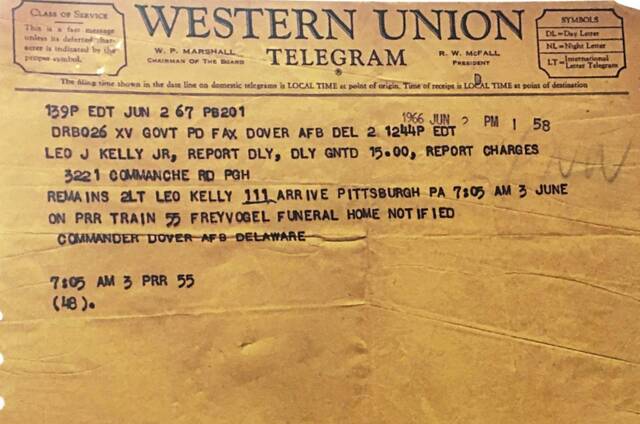 CLASS OF SERVICE
This is a fast message
unless its deferred char-
acter is indicated by the
proper symbol.
WESTERN UNION
TELEGRAM
W. P. MARSHALL
CHAIRMAN OF THE BOARD
R. W. McFALL
PRESIDENT
SYMBOLS
DL=Day Letter
NL=Night Letter
LT=International Letter Telegram
The filing time shown in the date line on domestic telegrams is LOCAL TIME at point of origin. Time of receipt is LOCAL TIME at point of destination
139P EDT JUN 2 67 PB201
1966 JUN 2 PM 1 58
DRB026 XV GOVT PD FAX DOVER AFB DEL 2 1244P EDT
LEO J KELLY JR, REPORT DLY, DLY GNTD 15.00, REPORT CHARGES
3221 COMMANCHE RD PGH
REMAINS 2LT LEO KELLY 111 ARRIVE PITTSBURGH PA 7:05 AM 3 JUNE
ON PRR TRAIN 55 FREYVOGEL FUNERAL HOME NOTIFIED
COMMANDER DOVER AFB DELAWARE
7:05 AM 3 PRR 55
(48).